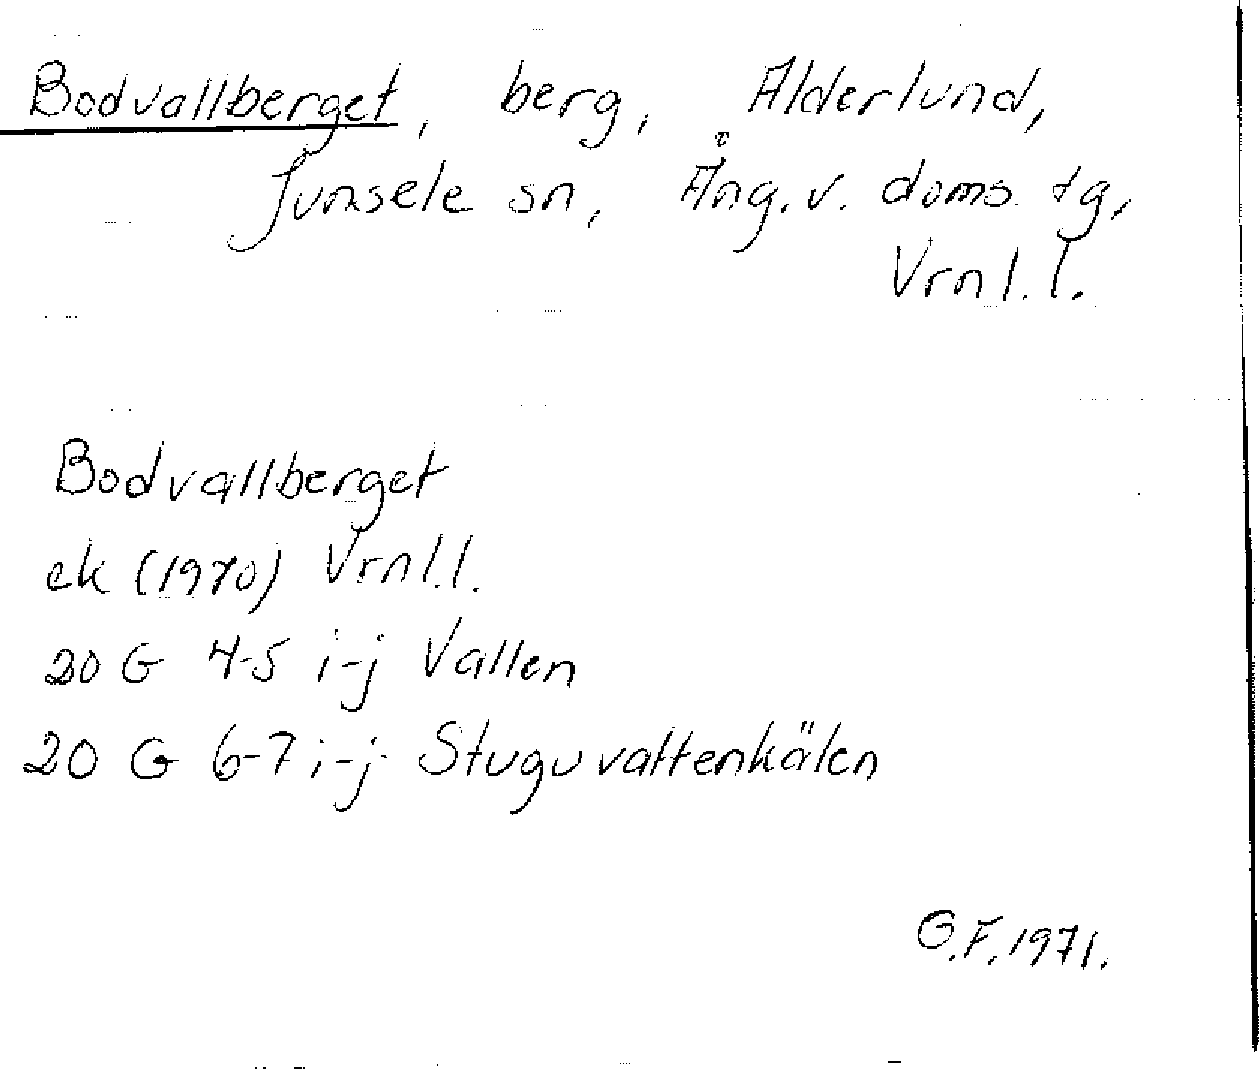 Bodvallberget, berg, Alderlund,
Junsele sn, Ång. v. doms. tg,
Vrnl. l.
Bodvallberget
ek (1970) Vrnl. l.
20 G 4-5 i-j Vallen
20 G 6-7 i-j Stuguvattenkälen
G.F. 1971.